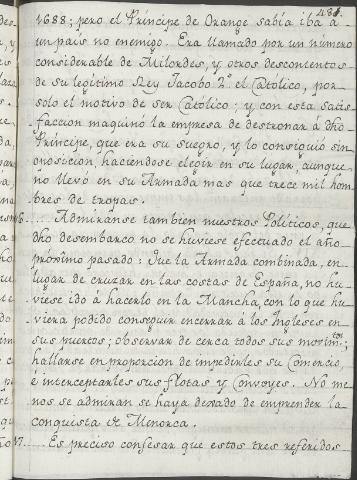 481.
1688; pero el Principe de Orange sabía iba á
un país no enemigo. Era llamado por un numero
considerable de Milordes, y otros descontentos
de su legitimo Rey Jacobo 2º el Católico, por
solo el motivo de ser Católico; y con esta satis-
faccion maquinó la empresa de destronar á dho
Principe, que era su suegro, y lo consiguió sin
oposicion, haciendose elegir en su lugar, aunque
no llevó en su Armada mas que trece mil hom
bres de tropas.
6.... Admiranse tambien nuestros Politicos, que
dho desembarco no se huviese efectuado el año
proximo pasado: Que la Armada combinada, en
lugar de cruzar en las costas de España, no hu-
viese ido á hacerlo en la Mancha, con lo que hu-
viera podido conseguir encerrar á los Ingleses en
sus puertos; observar de cerca todos sus movim.tos;
hallarse en proporcion de impedirles su Comercio,
é interceptarles sus flotas y Convoyes. No me-
nos se admiran se haya dexado de emprender la
conquista de Menorca.
7.... Es preciso confesar que estos tres referidos